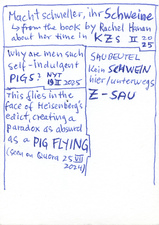 Macht schneller, ihr Schweine
↳ from the book by Rachel Hanan
about her time in KZs II 2025
Why are men such
self-indulgent
PIGS? NYT
19 II 2025
This flies in the
face of Heisenberg's
edict, creating a
paradox as absurd
as a PIG FLYING
(seen on Quora 25 VII
2024)
SAUBEUTEL
Kein SCHWEIN
hier/unterwegs
Z-SAU